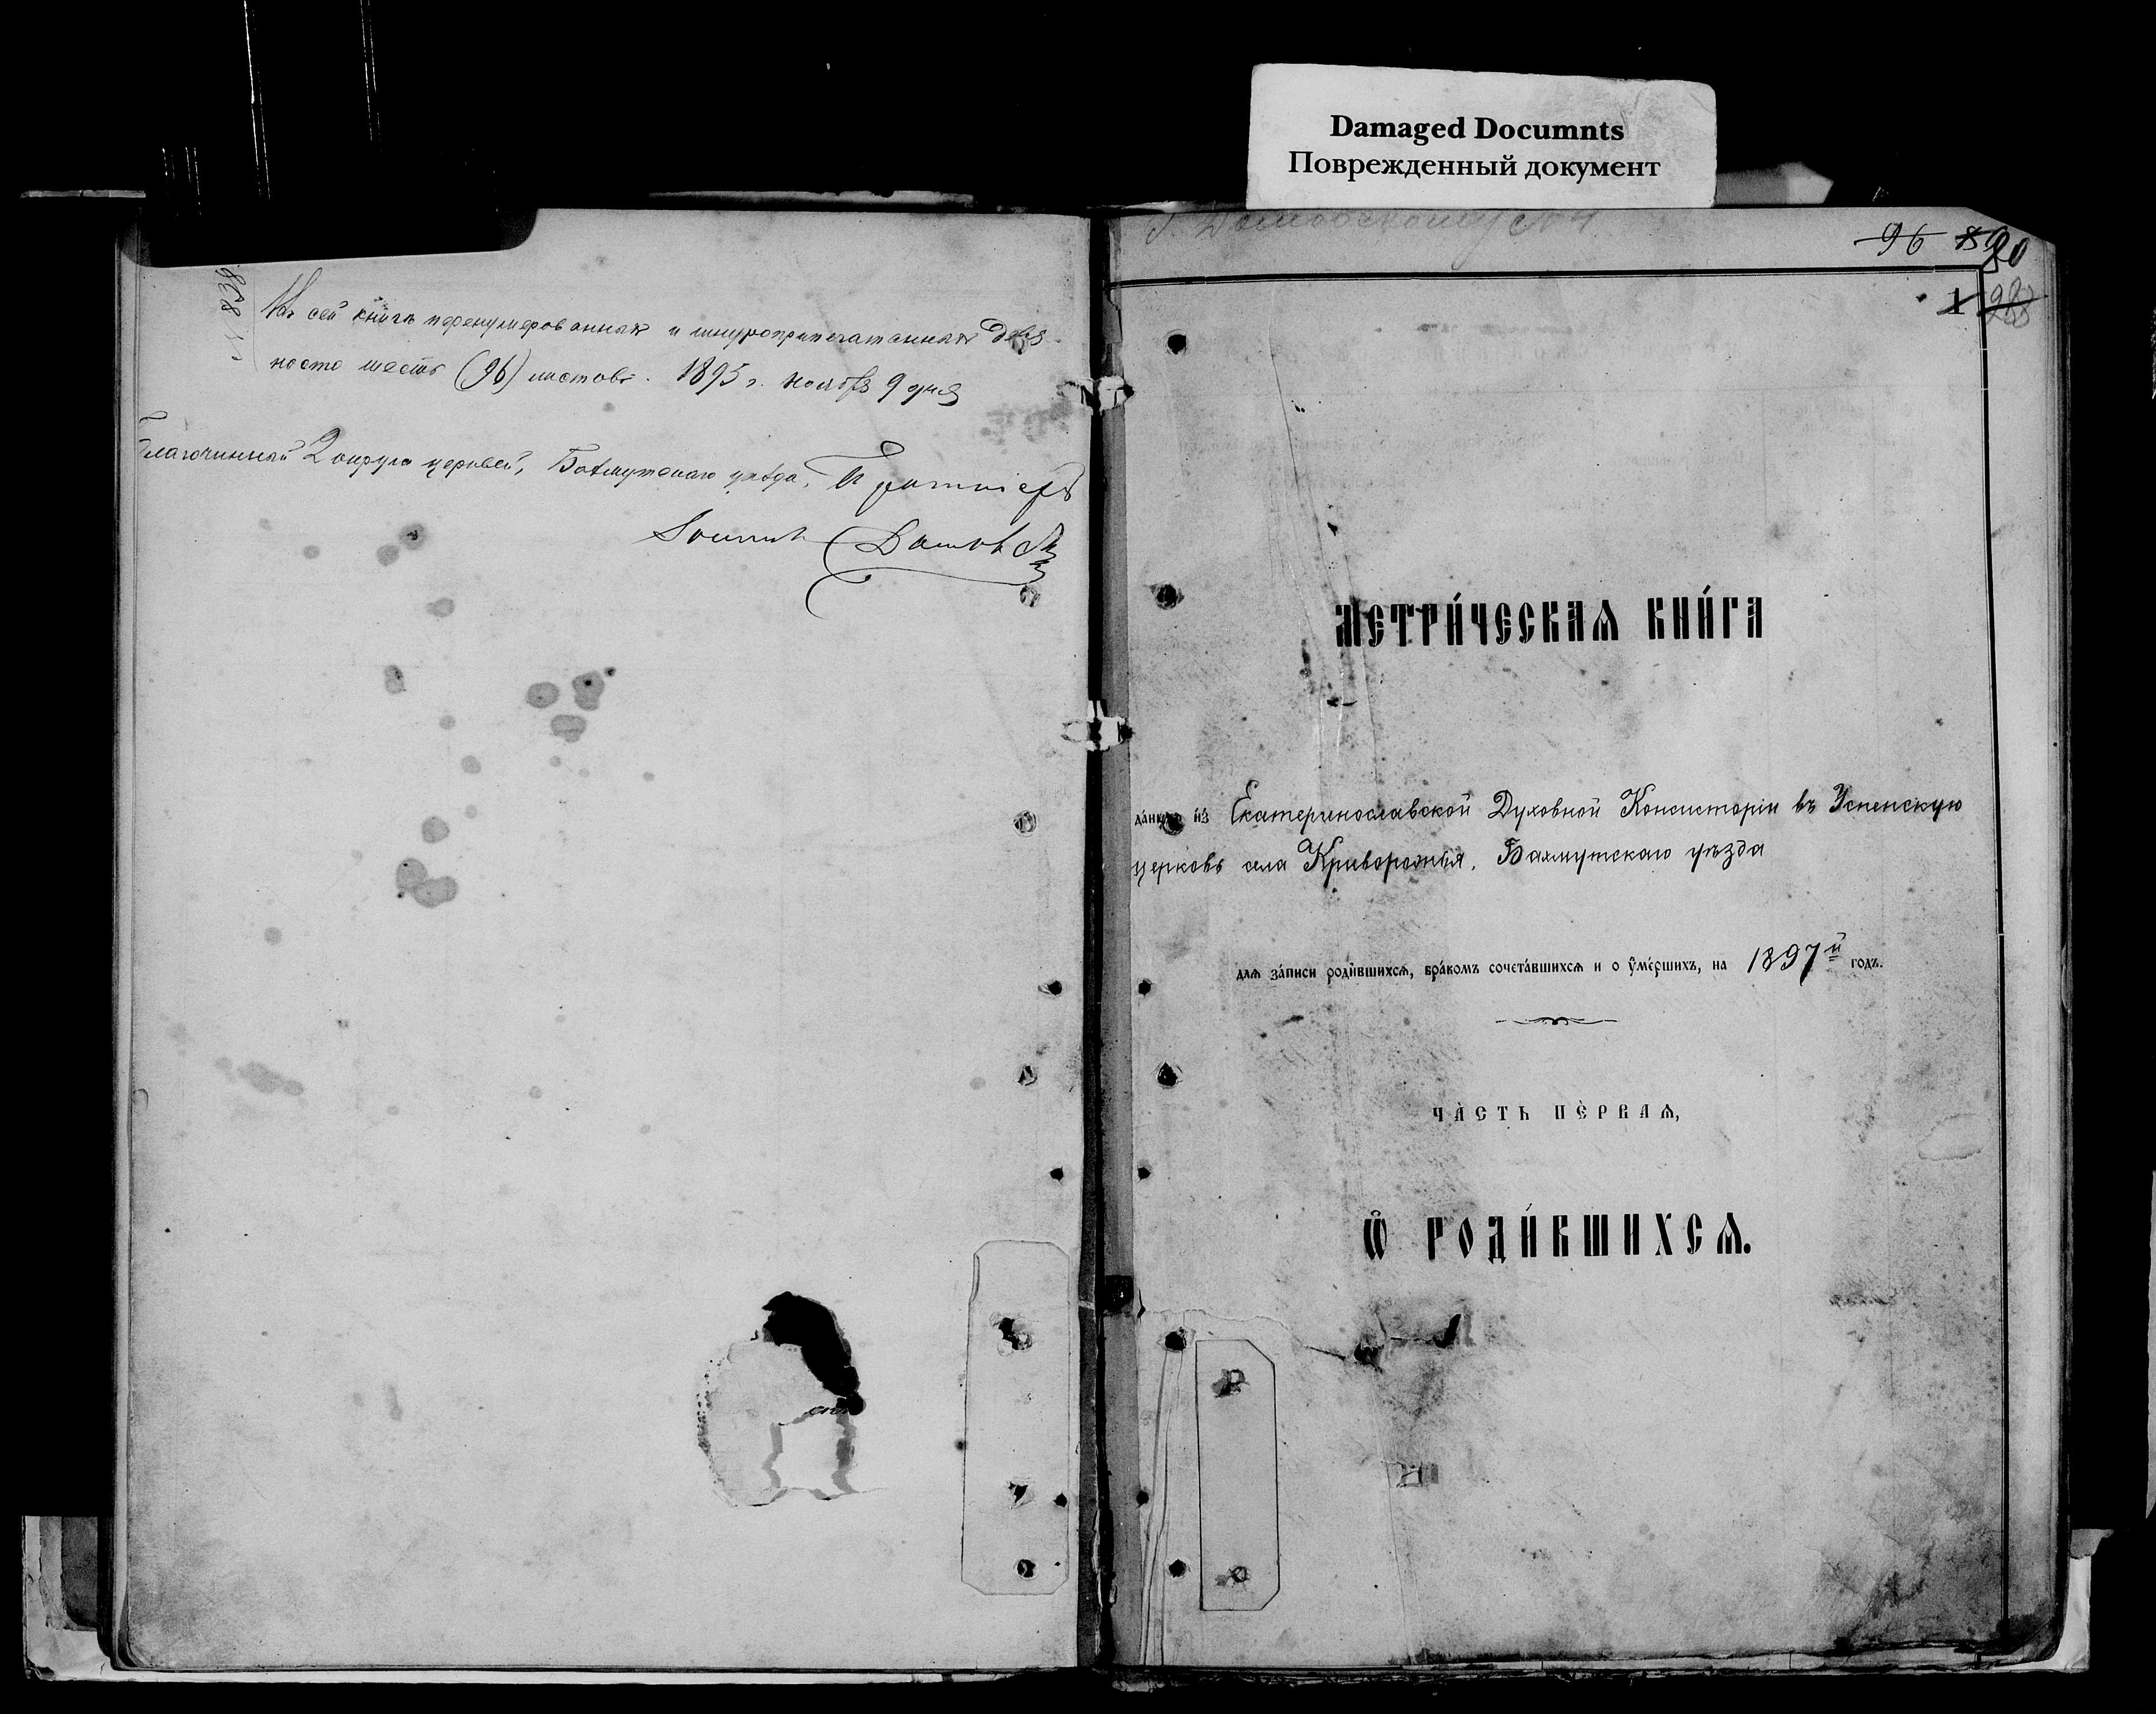 Damaged Documnts
Поврежденный документ
№ 838
Въ сей книгѣ перенумерованныхъ и шнуроприпечатанныхъ девя
носто шесть (96) листовъ. 1895 г. ноября 9 дня
Благочинный 2 округа церквей, Бахмутскаго уѣзда, Протоіерей
96
90
1
МЕТРИ́ЧЕСКАѦ КНИ́ГА
да́нная и҆з Екатеринославской Духовной Консисторіи въ Успенскую
церковь села Криворожья, Бахмутскаго уѣзда
длѧ за́писи роди́вшихсѧ, бра́комъ сочета́вшихсѧ и о ᲂу҆ме́ршихъ, на 1897й годъ.
ЧА́СТЬ ПЕ́РВАѦ,
Ѽ РОДИ́ВШИХСѦ.